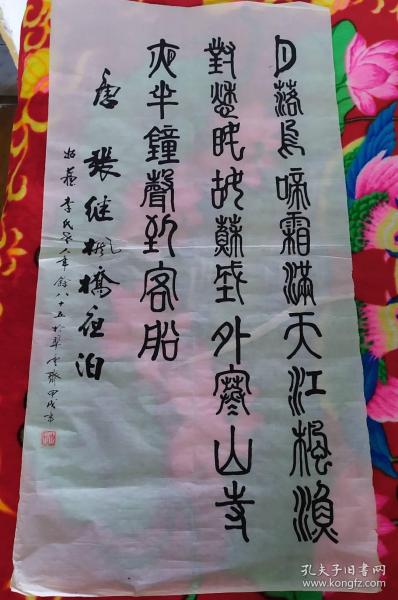 月落烏啼霜滿天江楓漁
對愁眠姑蘇城外寒山寺
夜半鐘聲到客船
唐 張繼楓橋夜泊
李氏 年餘八十五於 甲戌
孔夫子旧书网
www.kongfz.com